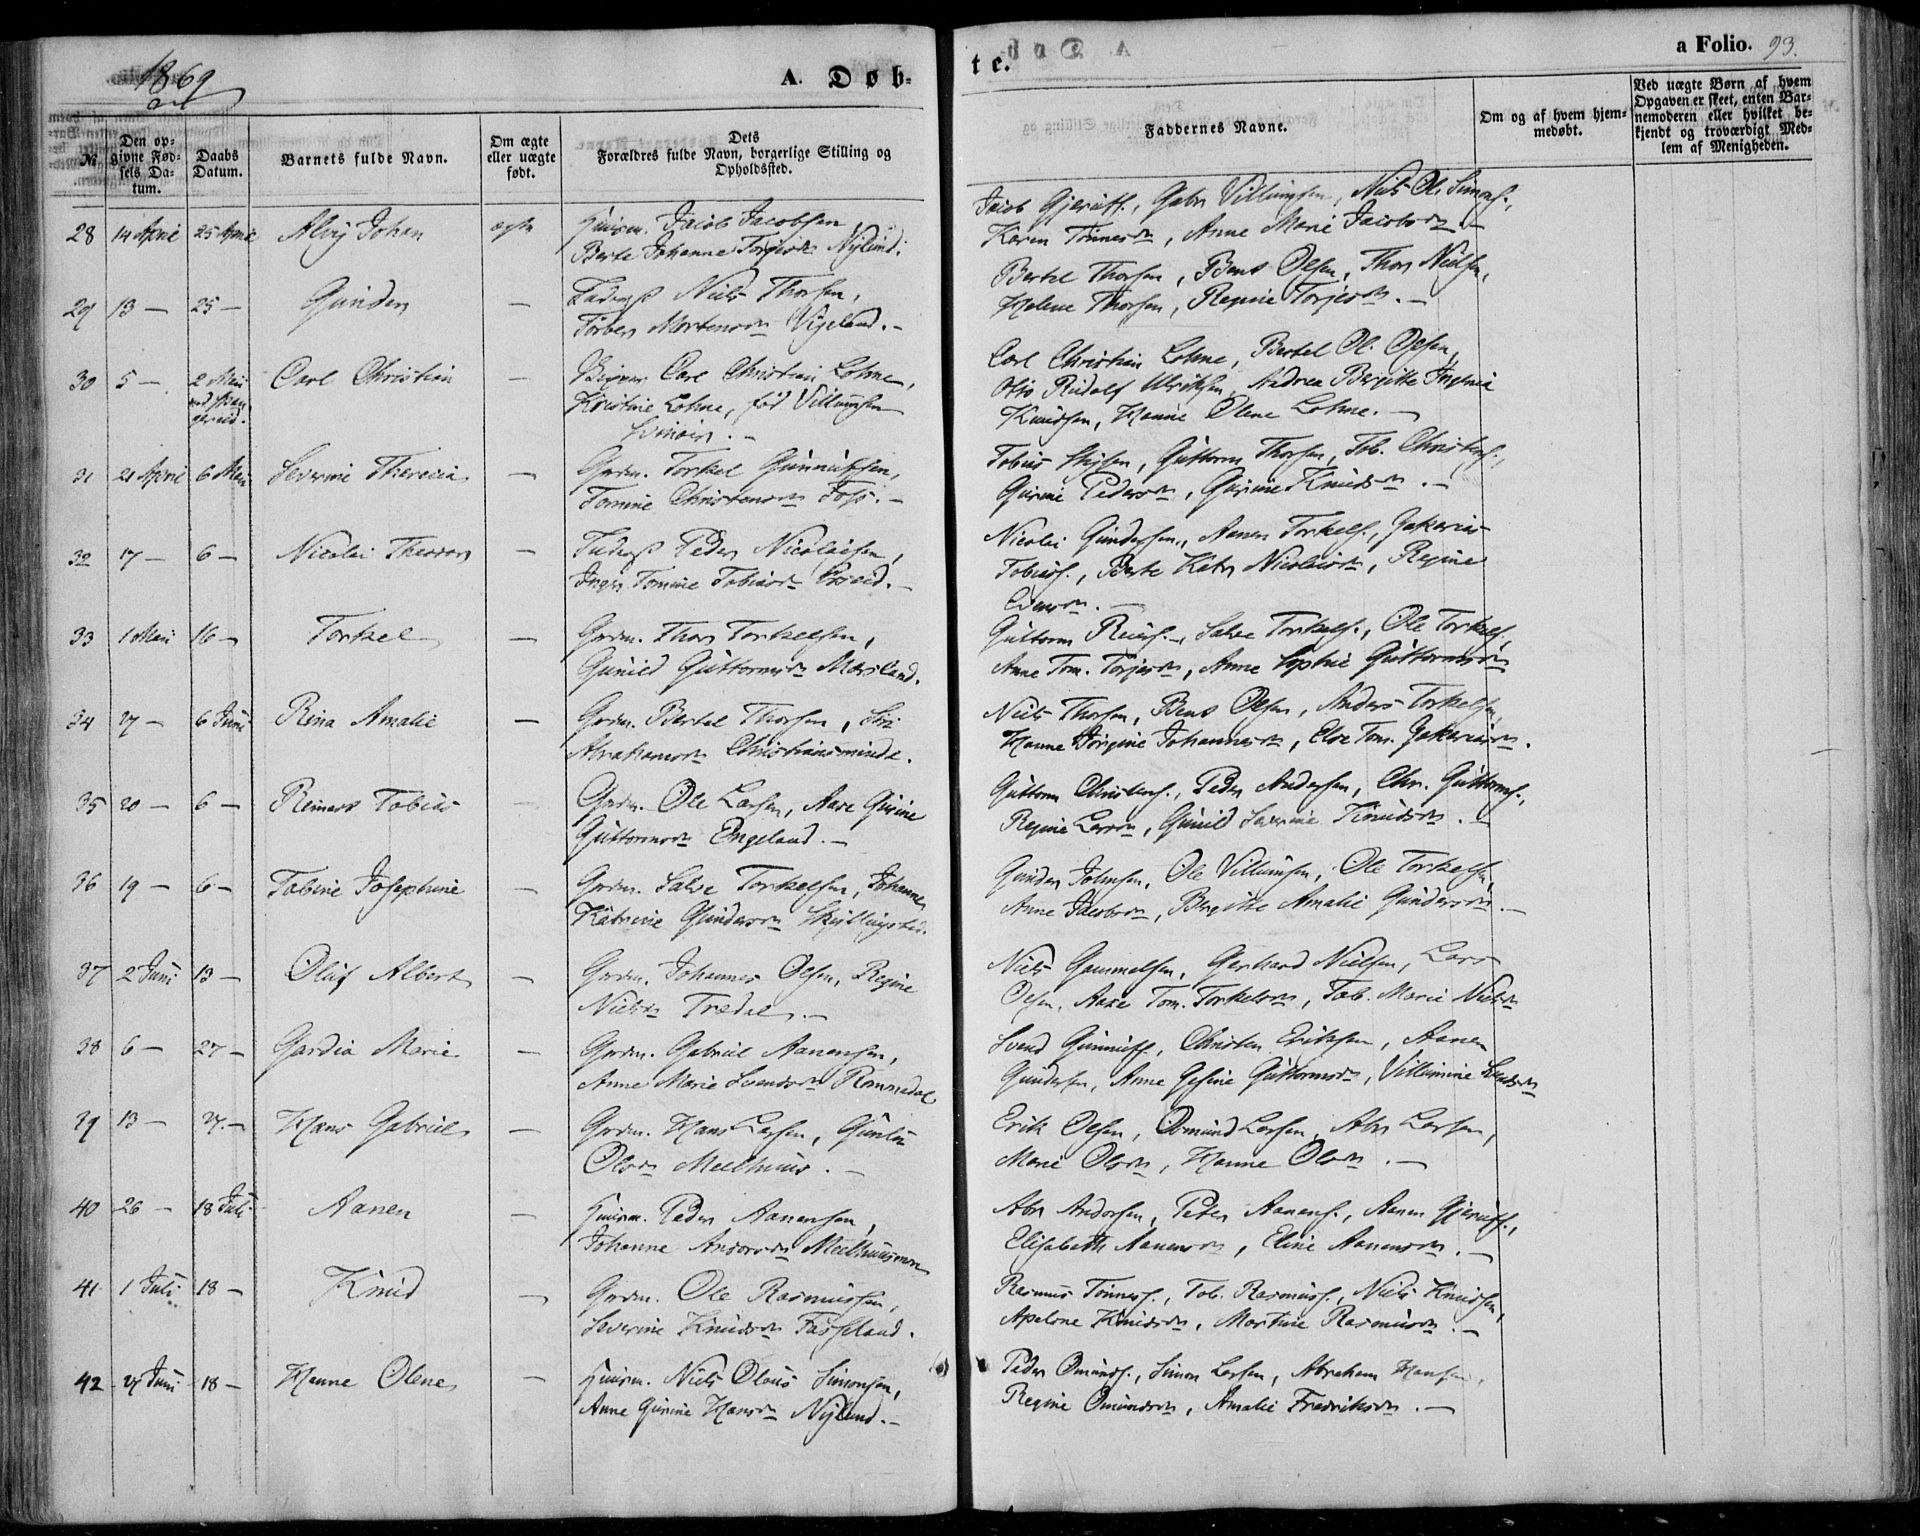 1869
A. Døb-
te.
a Folio. 93.
No.
Den op-
givne Fød-
sels Da-
tum.
Daabs
Datum.
Barnets fulde Navn.
Om ægte
eller uægte
født.
Dets
Forældres fulde Navn, borgerlige Stilling og
Opholdssted.
Faddernes Navne.
Om og af hvem hjem-
medøbt.
Ved uægte Børn af hvem
Opgaven er skeet, enten Bar-
nemoderen eller hvilket be-
kjendt og troværdigt Med-
lem af Menigheden.
28 14 April 25 April Alvij Johan ægte Huusm. Jacob Jacobsen
Berte Johanne Nylund.
Jacob Gjerulfs., Gabr Villumsen, Niels Ol. Simons.,
Karen Tønnesdr, Anne Marie Jacobsdr —
29 13 — 25 — Gunder — Niels Thorsen,
Torber Mortensdr Vigeland. —
Bertel Thorsen, Bent Olsen, Thor Nielsen,
Helene Thorsen, Regine Torjesdr. —
30 5 — 2 Mai Carl Christian — Skipper Carl Christian Lohne,
Kristine Lohne, fød Villumsen
Carl Christian Lohne, Bertel Ol. Olsen,
Otto Rudolf Ulriksen, Andrea Bergitte
Knudsen, Hanne Olene Lohne. —
31 21 April 6 Mai Severine Therecia — Grdm. Torkel Gunnufsen,
Tomine Christensdr Foss. —
Tobias, Guttorm Thorsen, Tob. Christens.,
Gurine Pedersdr, Gurine Knudsdr. —
32 17 — 6 — Nicolai Theodor — Peder Nicolaisen,
Inger Tomine Tobiasdr
Nicolai Gundersen, Aanen Torkels., Zakarias
Tobias., Berte Katr Nicolaisdr, Regine
33 1 Mai 16 — Torkel — Grdm. Thor Torkelsen,
Gunild Guttormsdr
Guttorm, Salve Torkels., Ole Torkels.
Anne Tom. Torjesdr, Anne Sophie Guttormsdr
34 27 — 6 Juni Rina Amalie — Grdm. Bertel Thorsen, Siri
Abrahamsdr Christiansminde.
Niels Thorsen, Bent Olsen, Anders Torkelsen,
Hanne Johannesdr, Elve Tom. Zakariasdr.
35 20 — 6 — Reinert Tobias — Grdm. Ole Larsen, Aase Gurine
Guttormsdr Engeland. —
Guttorm Christens., Peder Andersen, Chr. Guttorms.,
Regine Larsdr, Gunild Severine Knudsdr. —
36 19 — 6 — Tobine Josephine — Grdm. Salve Torkelsen, Johanne
Katrine Gundersdr Skjellingsted.
Gunder Johnsen, Ole Villumsen, Ole Torkelsen,
Anne Jacobsdr, Bergitte Amalie Gundersdr. —
37 2 Juni 13 — Oluf Albert — Grdm. Johannes Olsen, Regine
Nielsdr Trædal. —
Niels Gammelsen, Gerhard Nielsen, Lars
Olsen, Aase Tom. Torkelsdr, Tob. Marie Nielsdr
38 6 — 27 — Gardia Marie — Grdm. Gabriel Aanensen,
Anne Marie Svendsdr Rommedal
Svend Gunnufs., Christen Eriksen, Aanen
Gundersen, Anne Gesine Guttormsdr, Villumine
39 13 — 27. — Hans Gabriel — Grdm. Hans Larsen,
Olsdr Meelhuus. —
Erik Olsen, Osmund Larsen, Abr Larsen,
Marie Olsdr, Hanne Olsdr. —
40 26 — 18 Juli Aanen — Huusm. Peder Aanensen,
Johanne Andersdr Meelhuusmoen
Abr Andersen, Peter Aanens., Aanen Gjerulfs.,
Elisabeth Aanensdr, Eline Aanensdr. —
41 1 Juli 18 — Knud — Grdm. Ole Rasmussen,
Severine Knudsdr Fasseland.
Rasmus Tønnes., Tob. Rasmus., Niels Knudsen,
Apelone Knudsdr, Martine Rasmusdr. —
42 27 Juni 18 — Hanne Olene — Huusm. Niels Olaus Simonsen,
Anne Gurine Hansdr Nylund. —
Peder Omunds., Simon Larsen, Abraham Hansen,
Regine Omundsdr, Amalie Fredriksdr. —